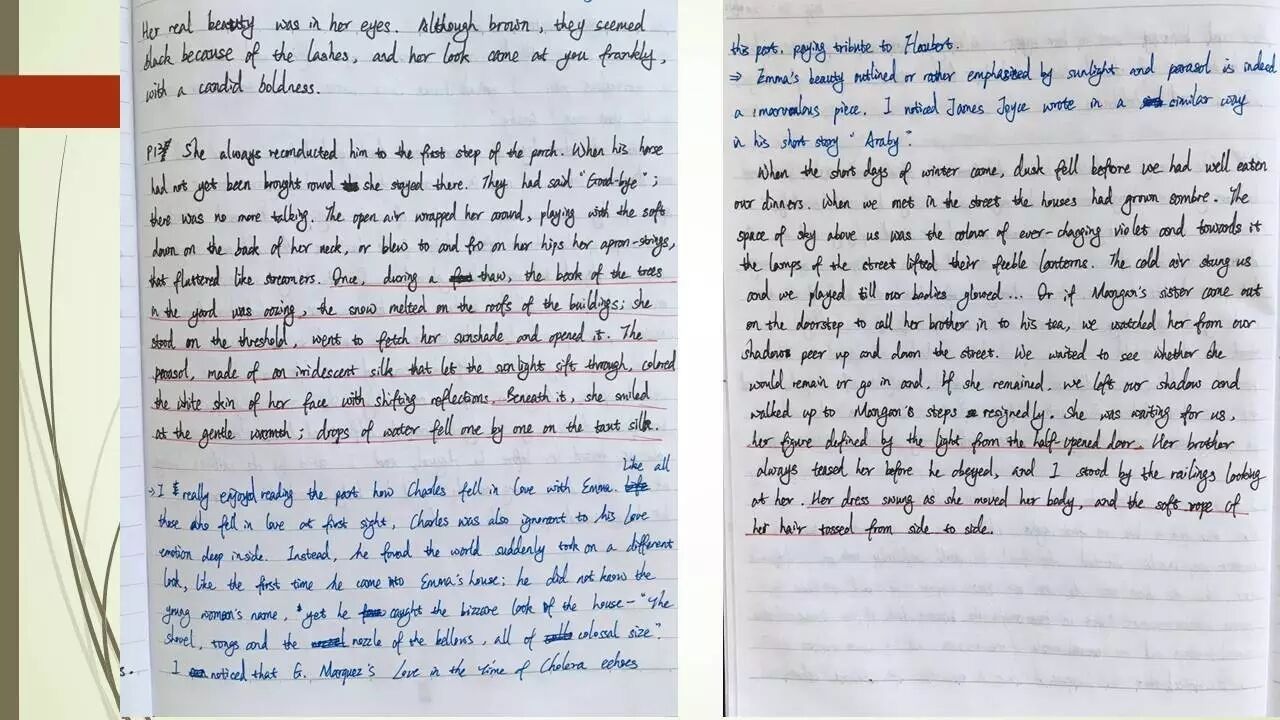 Her real beauty was in her eyes. Although brown, they seemed
black because of the lashes, and her look came at you frankly,
with a candid boldness.
She always reconducted him to the first step of the porch. When his horse
had not yet been brought round she stayed there. They had said "Good-bye";
there was no more talking. The open air wrapped her around, playing with the soft
down on the back of her neck, or blew to and fro on her hips her apron-strings,
that fluttered like streamers. Once, during a thaw, the bark of the trees
in the yard was oozing, the snow melted on the roofs of the buildings; she
stood on the threshold, went to fetch her sunshade and opened it. The
parasol, made of an iridescent silk that let the sunlight sift through, colored
the white skin of her face with shifting reflections. Beneath it, she smiled
at the gentle warmth; drops of water fell one by one on the taut silk.
→ I really enjoyed reading the part how Charles fell in love with Emma. Like all
those who fell in love at first sight, Charles was also ignorant to his love
emotion deep inside. Instead, he found the world suddenly took on a different
look, like the first time he came into Emma's house; he did not know the
young woman's name, yet he caught the bizzare look of the house – "The
shovel, tongs and the nozzle of the bellows, all of colossal size".
I noticed that G. Marquez's Love in the Time of Cholera echoes
this part, paying tribute to Flaubert.
⇒ Emma's beauty outlined or rather emphasized by sunlight and parasol is indeed
a marvoulous piece. I noticed James Joyce wrote in a similar way
in his short story "Araby".
When the short days of winter came, dusk fell before we had well eaten
our dinners. When we met in the street the houses had grown sombre. The
space of sky above us was the colour of ever-chaging violet and towards it
the lamps of the street lifted their feeble lanterns. The cold air stung us
and we played till our bodies glowed... Or if Mangan's sister came out
on the doorstep to call her brother in to his tea, we watched her from our
shadows peer up and down the street. We waited to see whether she
would remain or go in and, if she remained, we left our shadow and
walked up to Mangan's steps resignedly. She was waiting for us,
her figure defined by the light from the half-opened door. Her brother
always teased her before he obeyed, and I stood by the railings looking
at her. Her dress swung as she moved her body, and the soft rope of
her hair tossed from side to side.